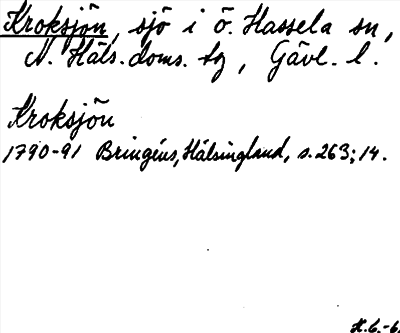 Kroksjön, sjö i ö. Hassela sn,
N. Häls. doms. tg, Gävl. l.
Kroksjön
1790-91 Bringéus, Hälsingland, s. 263; 14.